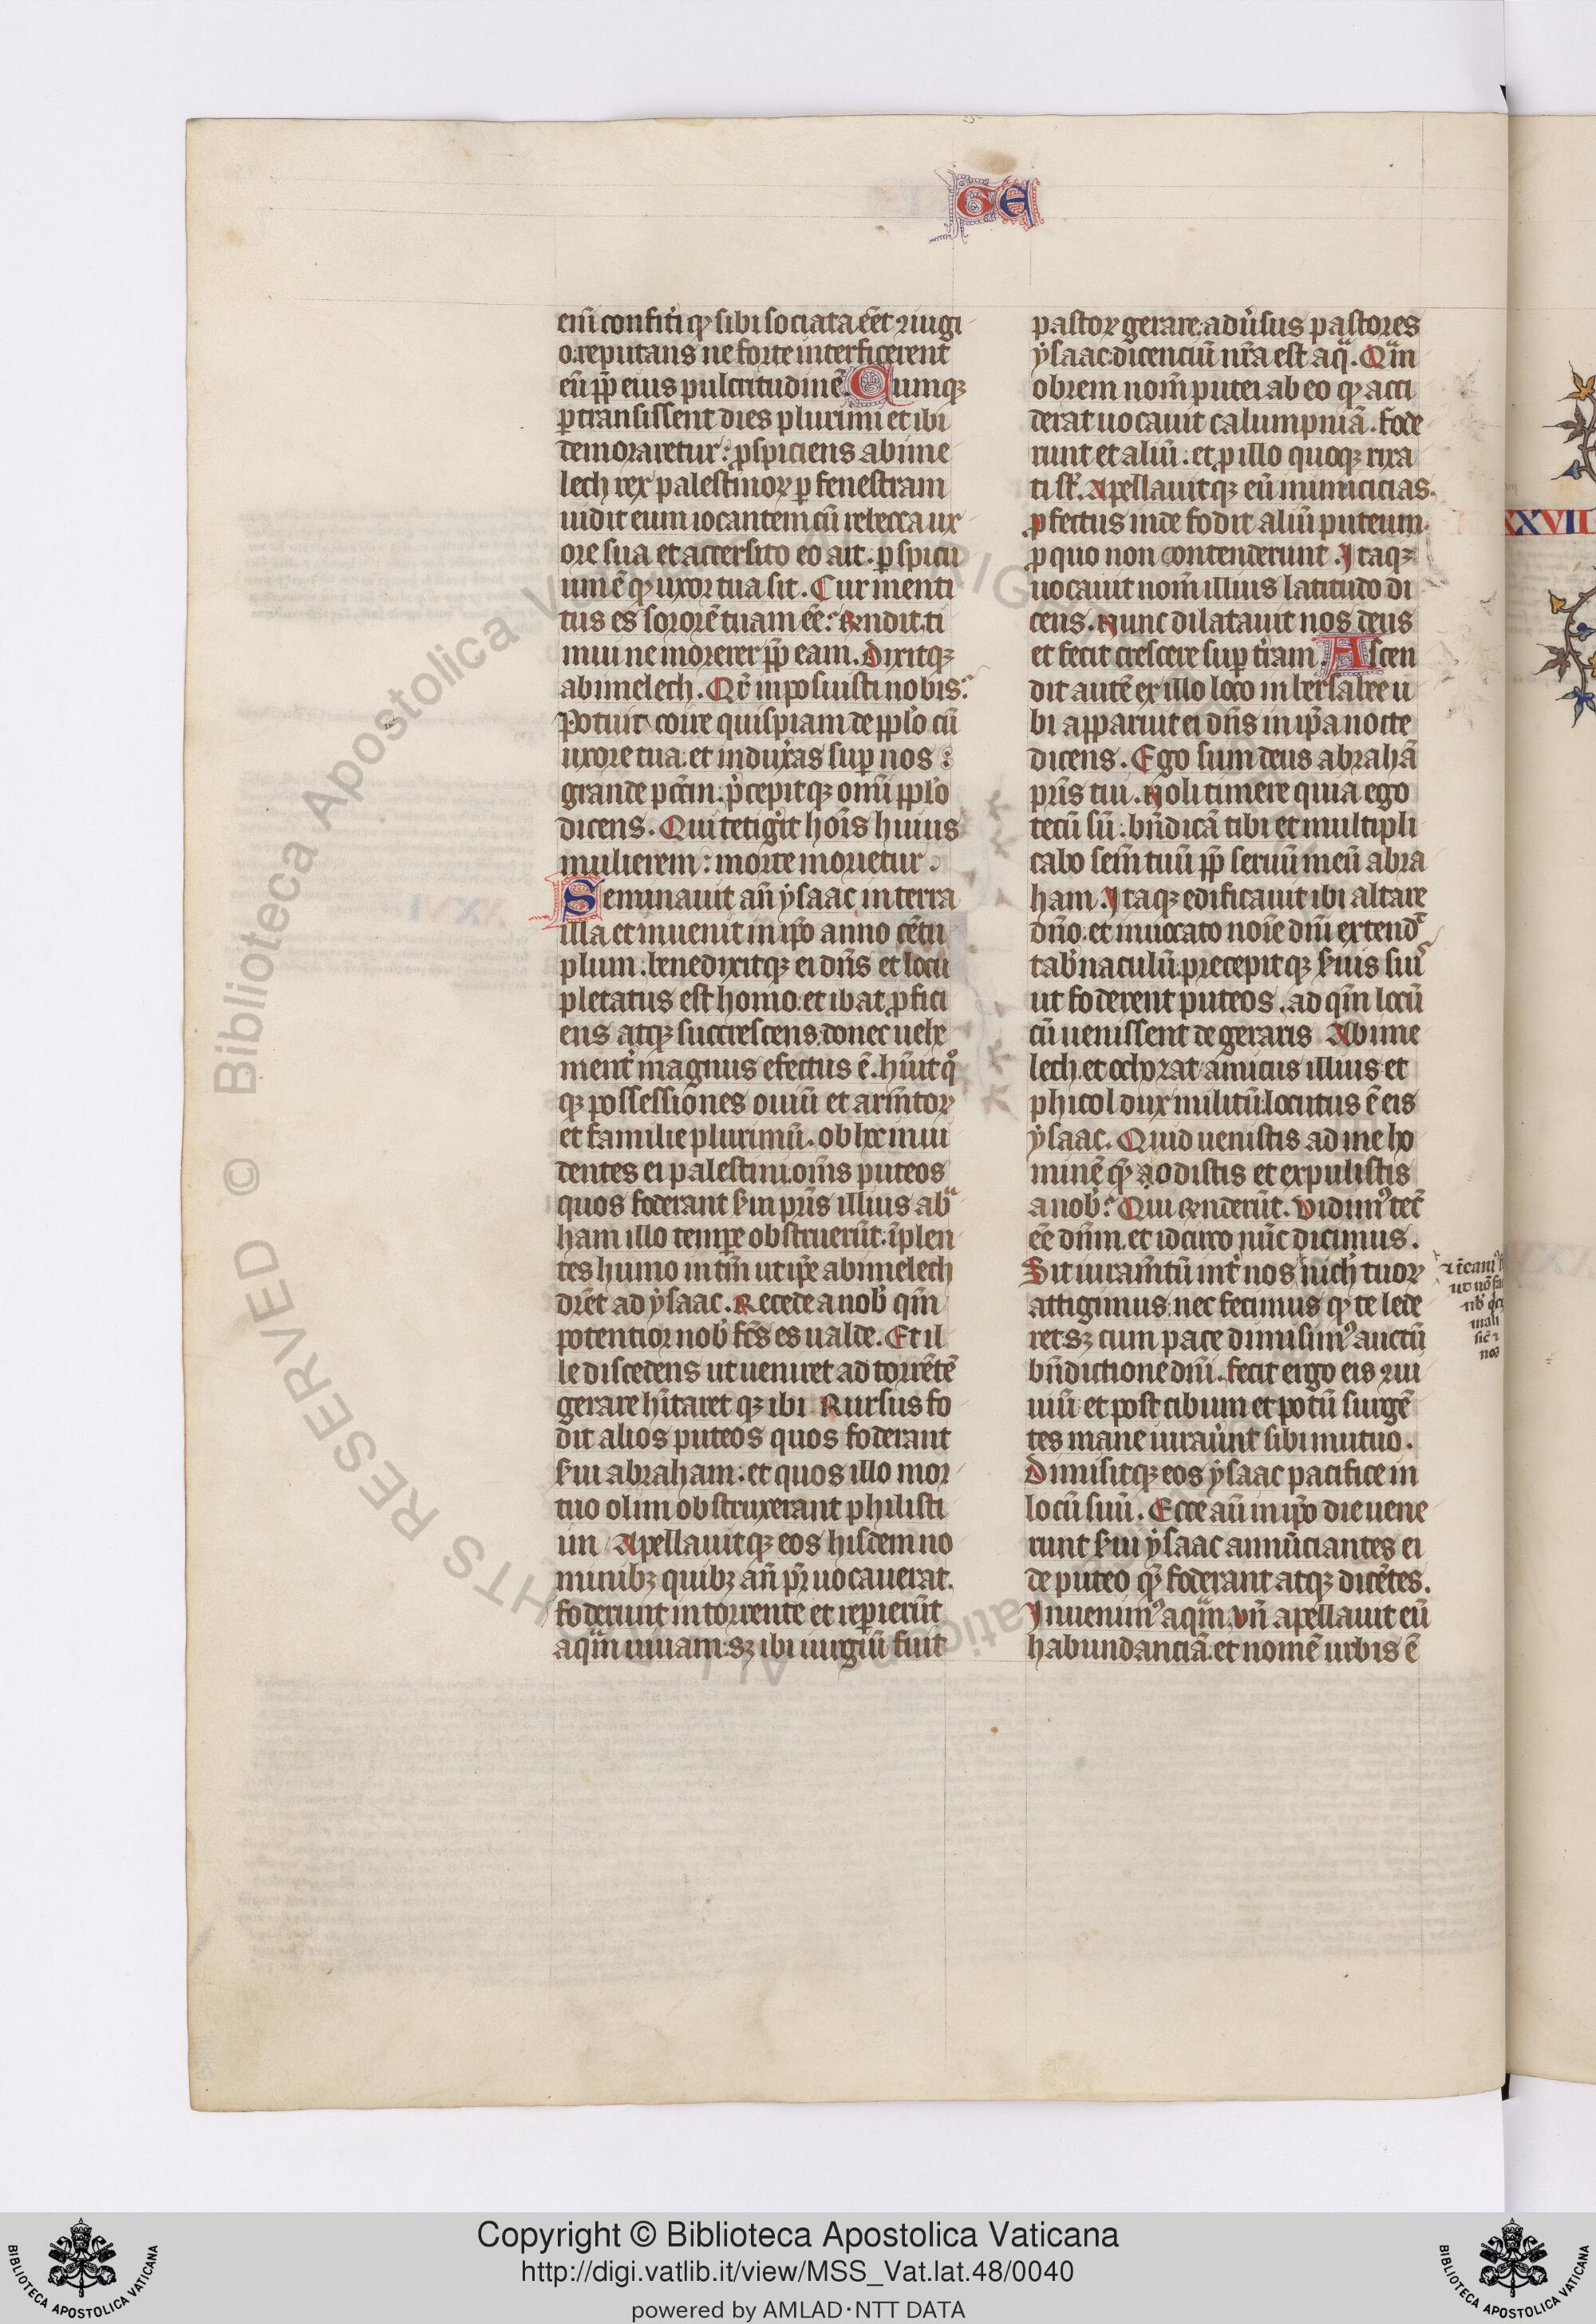 GE
eni͛ confit͛i qͥ sibi sociata eēt ⁊iugi
o. reputans ne forte interficerent
eū ꝓp̄ eius pulcritudinē. Cumqꝫ
ꝑtransissent dies plurimi et ibi
demoraretur: ꝓspiciens abime
lech rex palestinoꝝ ꝑ fenestram
uidit eum iocantem cū rebecca ux
ore sua et accersito eo ait. ꝑspicu
um ē qꝫ uxor tua sit. Cur menti
tus es sororē tuam eē: Rn̄dit. ti
mui ne morerer ꝓp̄ eam. Dixitqꝫ
abimelech. Qr̄ inposuisti nobis.
Potuit coire quispiam de pplo cū
uxore tua: et indux͛as sup nos
grande pctm̄. p͛cepitqꝫ om̄i pplo
dicens. Qui tetig͛it hoīs huius
mulierem: morte morietur.
Seminauit aū ẏsaac in terra
illa et inuenit in ip̄o anno cētu
plum. benedixitqꝫ ei dn̄s et locu
pletatus est homo. et ibat ꝓfici
ens atqꝫ succrescens. donec uehe
ment͛ magnus efectus ē. hūit qͦ
qꝫ possessiones ouiū et arm̄toꝝ
et familie plurimū. ob hec inui
dentes ei palestini. om̄s puteos
quos foderant s͛ui pr̄is illius abͣ
ham illo tempore obstruerūt. īplen
tes humo in tm̄ ut ip̄e abimelech
dr̄et ad ẏsaac. Recede a nob͛ qm̄
potentior nob͛ fc̄s es ualde. Et il
le discedens ut ueniret ad torrētē
gerare hītaret qꝫ ibi. Rursus fo
dit alios puteos quos foderant
s͛ui abraham. et quos illo mor
tuo olim obstruxerant philisti
im. Apellauitqꝫ eos hisdem no
minibꝫ quibꝫ an̄ pr̄ uocauerat.
foderunt in torrente et repierūt
aqͣm uiuam. sꝫ ibi iurgiū fuit
pastoꝝ gerare. adu͛sus pastores
ẏsaac. dicenciū nr̄a est aqͣ. Qͣm
obrem nom̄ putei ab eo qꝫ acci
derat uocauit calumpniā. Fode
runt et aliū. et ꝓ illo quoqꝫ rixa
ti st̄. Apellauitqꝫ eū inimicicias.
ꝓfectus inde fodit aliū puteum.
ꝓ quo non contenderunt. Itaqꝫ
uocauit nom̄ illius latitudo di
cens. Nunc dilatauit nos deus
et fecit crescere sup t͛ram. Ascen
dit autē ex illo loco in bersabee u
bi apparuit ei dn̄s in ip̄a nocte
dicens. Ego sum deus abrahā
pr̄is tui. Noli timere quia ego
tecū sū. bn̄dicā tibi et multipli
cabo sem̄ tuū ꝓp̄ seruū meū abra
ham. Itaqꝫ edificauit ibi altare
dn̄o. et inuocato noīe dn̄i extend͛
tab͛naculū. precepitqꝫ s͛uis suis
ut foderent puteos. ad qm̄ locū
cū uenissent de geraris Abime
lech. et ochozat amicus illius et
phicol dux militū. locutus ē eis
ẏsaac. Quid uenistis ad me ho
minē qꝫ aodistis et expulistis
a nob͛. Qui rn̄derūt. Vidimꝰ tec̄
eē dn̄m. et idcirco nūc dicimus.
Sit iuram̄tū int͛ nos nich͛ tuoꝝ
attigimus. nec fecimus qꝫ te lede
ret. sꝫ cum pace dimisimꝰ auctū
bn̄dictione dn̄i. fecit ergo eis ⁊ui
uiū et post cibum et potū surgē
tes mane iurau͛nt sibi mutuo.
Dimisitqꝫ eos ẏsaac pacifice in
locū suū. Ecce aū in ip̄o die uene
runt s͛ui ẏsaac annūciantes ei
de puteo qꝫ foderant atqꝫ dicētes.
Inuenimꝰ aqͣm. vn̄ apellauit eū
habundanciā. et nomē urbis ē
mali
nos
XXVII
Copyright © Biblioteca Apostolica Vaticana
http://digi.vatlib.it/view/MSS_Vat.lat.48/0040
powered by AMLAD·NTT DATA
BIBLIOTECA APOSTOLICA VATICANA
BIBLIOTECA APOSTOLICA VATICANA